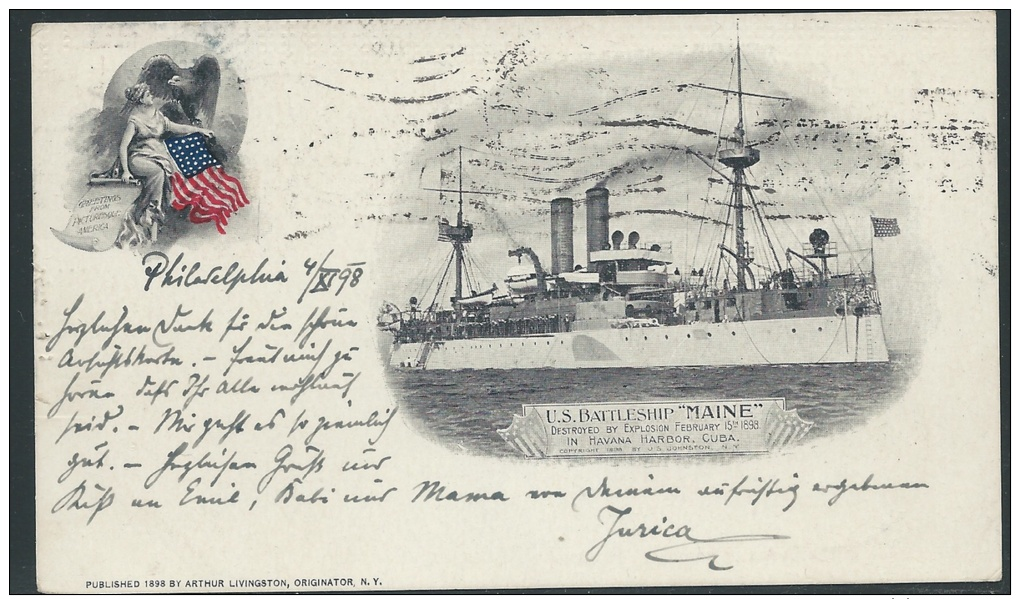 GREETINGS
FROM
PICTURESQUE
AMERICA
Philadelphia 4/XI 98
Herzlichen Dank für die schöne
Ansichtskarte. – Freut mich zu
hören daß Ihr Alle wohlauf
seid. – Mir geht es so ziemlich
gut. – Herzlichen Gruß und
Kuß an Emil, Babi und Mama von Deinem aufrichtig ergebenen
Jurica
U.S. BATTLESHIP "MAINE"
DESTROYED BY EXPLOSION FEBRUARY 15TH 1898.
IN HAVANA HARBOR, CUBA.
COPYRIGHT 1898 BY J.S. JOHNSTON, N.Y.
PUBLISHED 1898 BY ARTHUR LIVINGSTON, ORIGINATOR, N.Y.